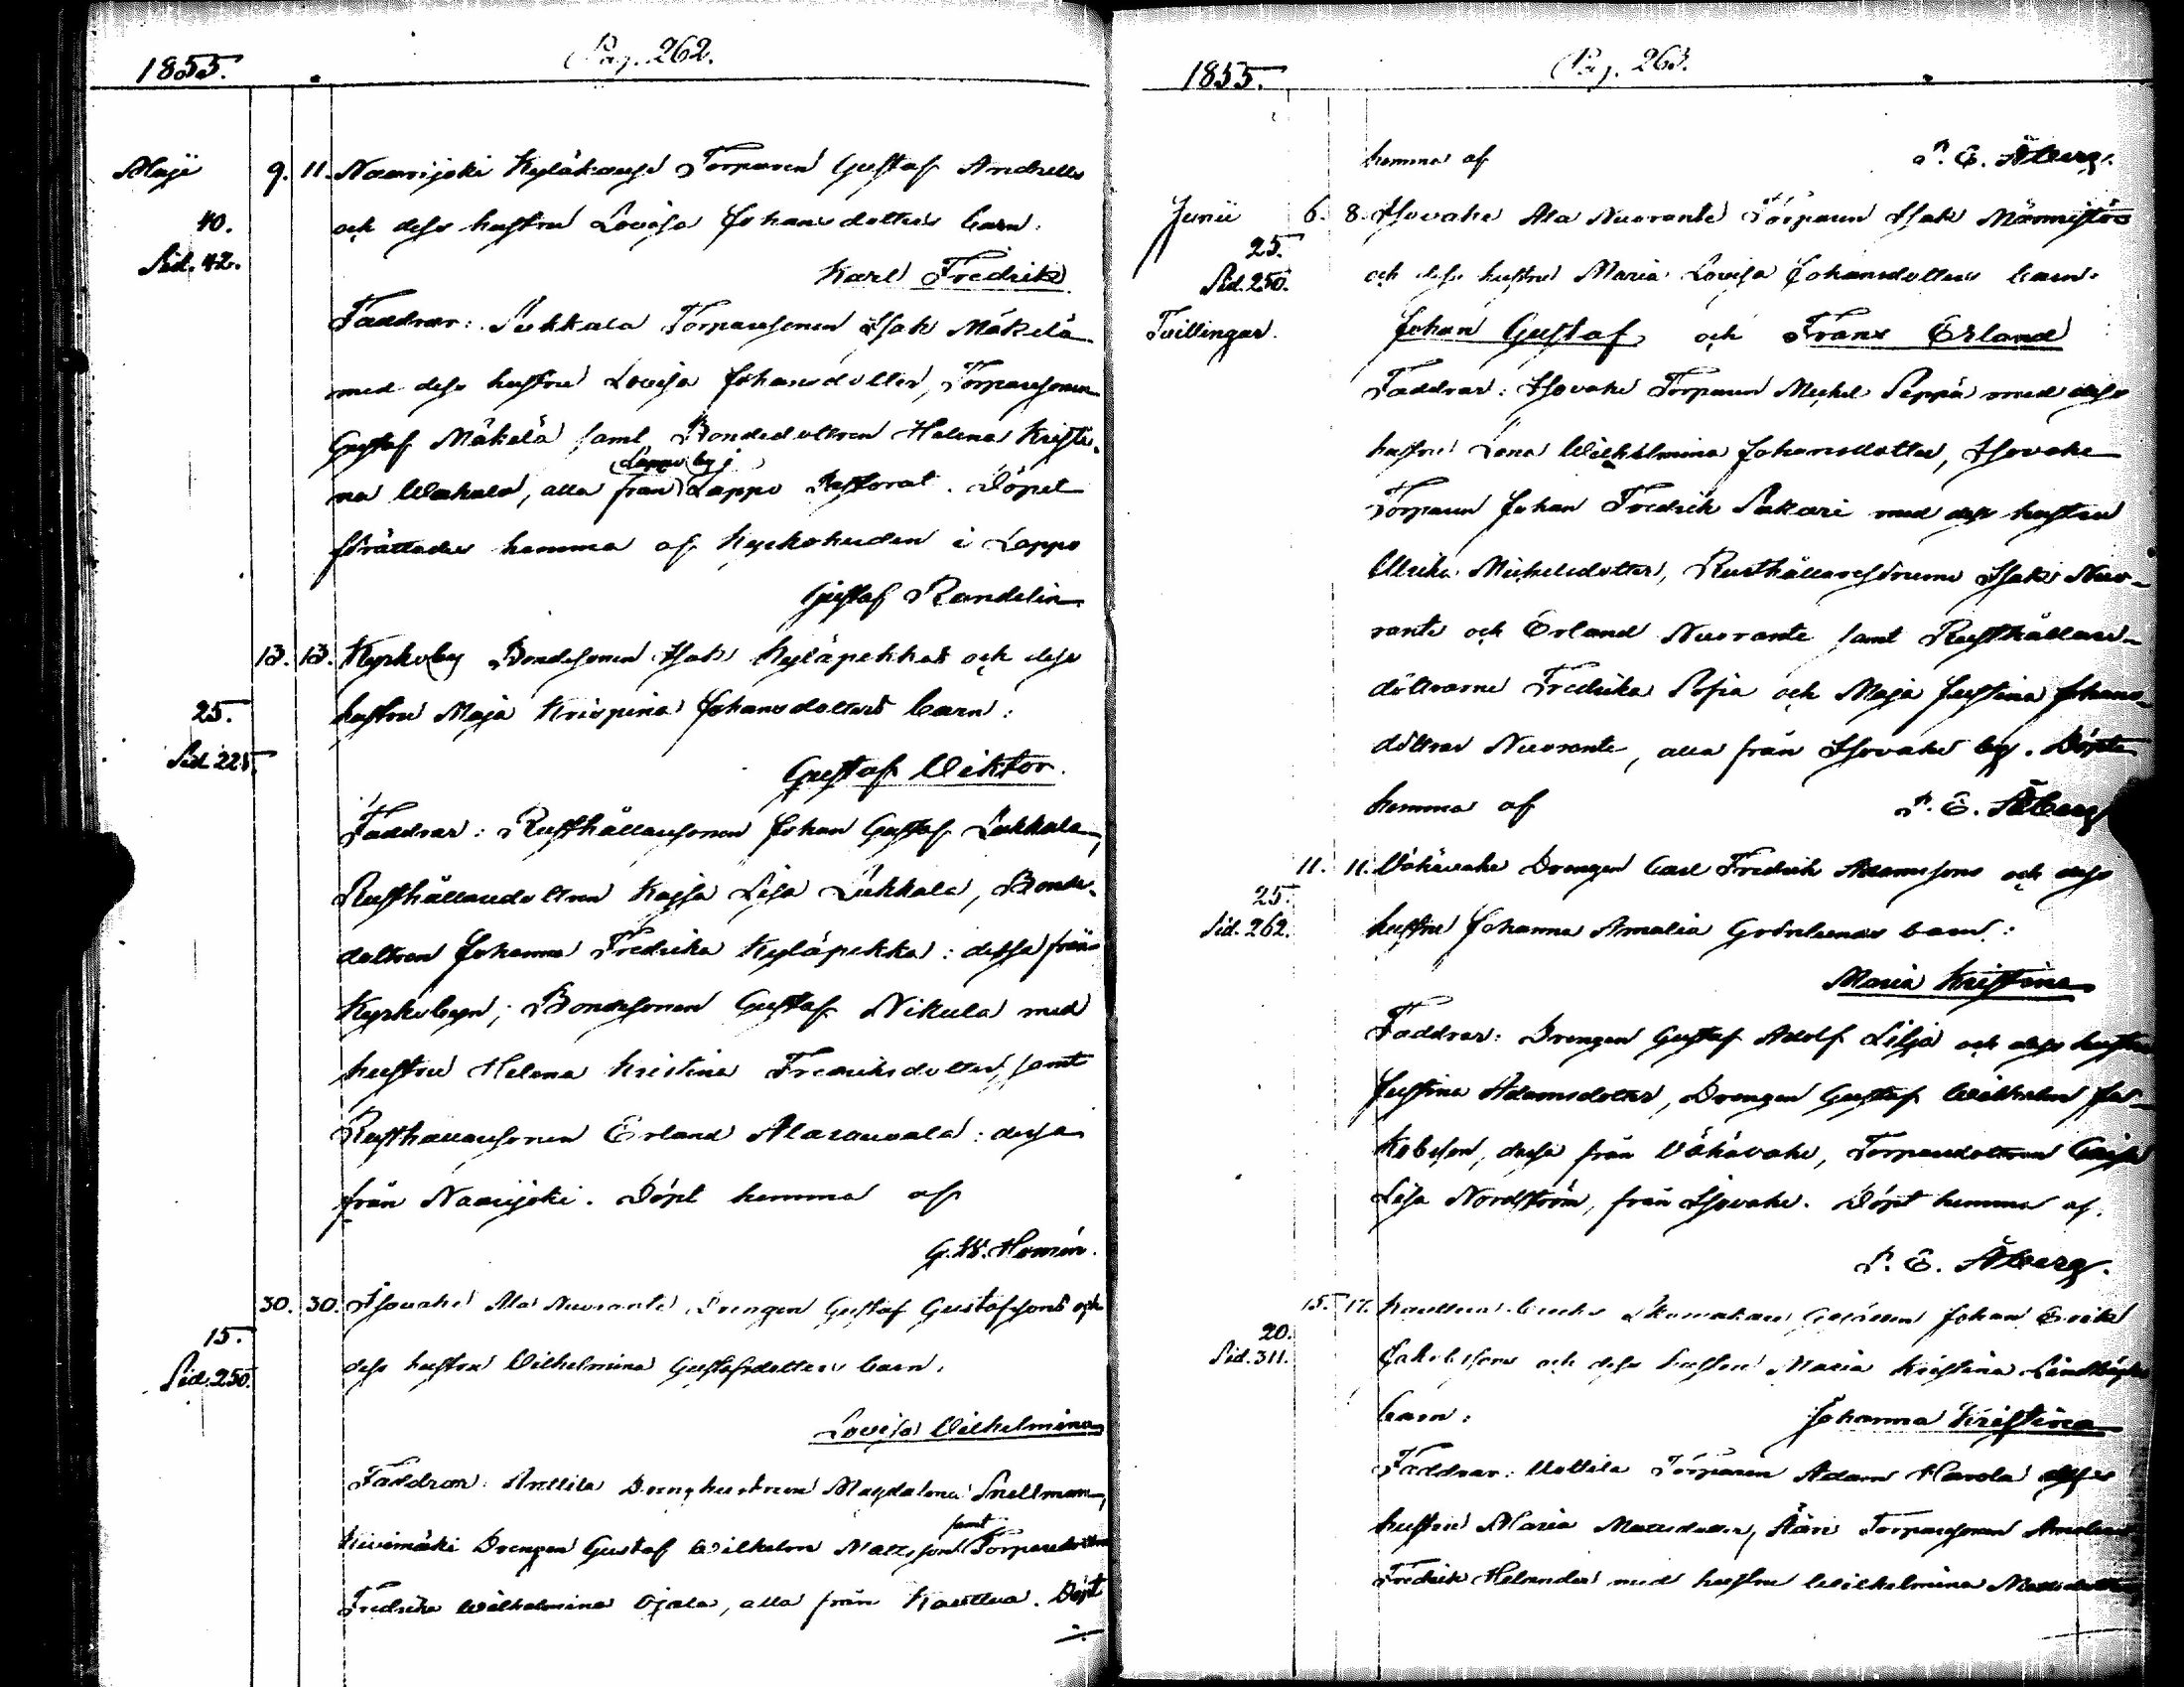 1855.
Pag. 262.
Maji 9. 11. Naarijoki Kyläkarhi Torparen Gustaf Andells
40. och dess hustru Lovisa Johansdotters barn:
Sid. 42.
Karl Fredrik
Faddrar: Torparesonen Isak Mäkelä
med dess hustru Lovisa Johansdotter, Torparesonen
Gustaf Mäkelä samt Bondedottren Helena Kristi-
Lappo by i
na Wakala, alla från Lappo Pastorat. Döpet
förättades hemma af Kyrkoherden i Lappo
Gustaf Randelin
13. 13. Kyrkoby Bondesonen Isak Kyläpekkas och dess
25. hustru Maja Krispina Johansdotters barn:
Sid. 225.
Gustaf Viktor.
Faddrar: Rusthållaresonen Johan Gustaf Lukkala,
Rusthållaredottren Kajsa Lisa Lukkala, Bonde-
dottren Johanna Fredrika Kyläpekka: dessa från
Kyrkobyn; Bondesonen Gustaf Nikula med
hustru Helena Kristina Fredriksdotter, samt
Rusthållaresonen Erland Alarauvala: dessa
från Naarijoki. Döpt hemma af
G. W. Homén.
30. 30. Isovahe Ala Nuorante Drengen Gustaf Gustafssons och
15. dess hustru Vilhelmina Gustafsdotters barn:
Sid. 250.
Lovisa Vilhelmina
Faddrar: Anttila Drenghustrun Magdalena Snellman,
samt
Kivimäki Drengen Gustaf Wilhelm Mattsson Torparedottren
Fredrika Wilhelmina Ojala, alla från Kauttua. Döpt
1855.
Pag. 263.
hemma af P. E. Åberg.
Junii 6. 8. Isovahe Ala Nuorante Torparen Isak Männistös
25. och dess hustru Maria Lovisa Johansdotters barn:
Sid. 250.
Tvillingar. Johan Gustaf och Frans Erland
Faddrar: Isovahe Torparen Michel Seppä med dess
hustru Lena Wilhelmina Johansdotter, Isovahe
Torparen Johan Fredrik Sakari med dess hustru
Ulrika Michelsdotter, Rusthållaresönerne Isak Nuo-
rante och Erland Nuorante samt Rusthållare-
döttrarne Fredrika Sofia och Maja Justina Johans-
döttrar Nuorante, alla från Isovahe by. Döpte
hemma af P. E. Åberg
11. 11. Vähävahe Drengen Carl Fredrik Adamssons och dess
25.
Sid. 262. hustru Johanna Amalia Grönlunds barn:
Maria Kristina
Faddrar: Drengen Gustaf Adolf Lilja och dess hustru
Justina Adamsdotter, Drengen Gustaf Wilhelm Ja-
kobsson, dessa från Vähävahe, Torparedottren Cajsa
Lisa Nordström, från Isovahe. Döpt hemma af
P. E. Åberg.
15. 17. Kauttua bruks Skomakare Gesällen Johan Erik
20.
Sid. 311. Jakobssons och dess hustru Maria Kristina
barn: Johanna Kristina
Faddrar: Torparen Adam Harola dess
hustru Maria Mattsdotter, Torparesonen
Fredrik Helander med hustru Wilhelmina